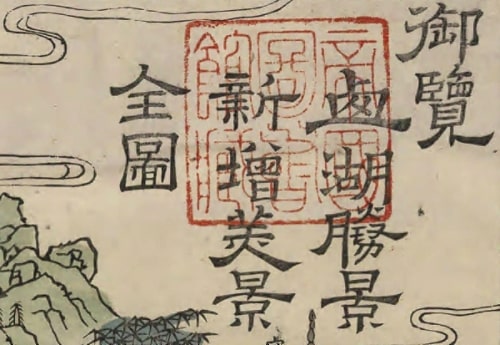 御覽
西湖勝景
新增美景
全圖